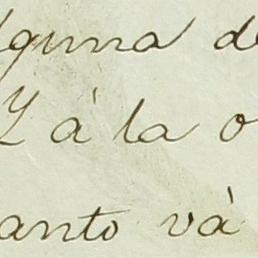 lguna de
Y á la o
anto vá